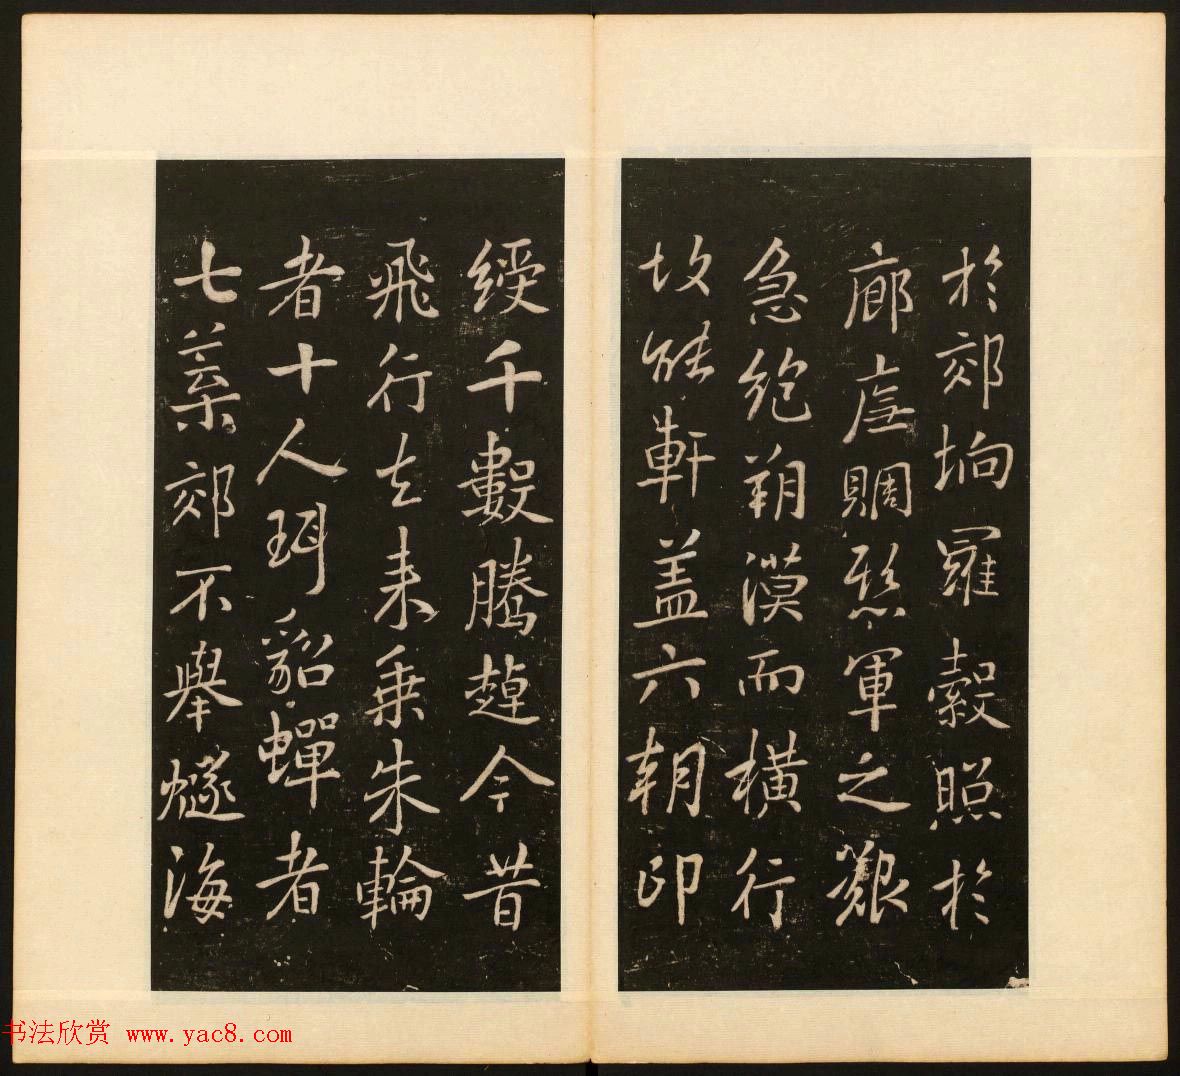 於郊坰羅縠照於
廊廡賙懸軍之艱
急絶朔漠而横行
故能軒盖六朝印
綬千數騰趠今昔
飛行去来乗朱輪
者十人珥貂蟬者
七葉郊不舉燧海
书法欣赏 www.yac8.com